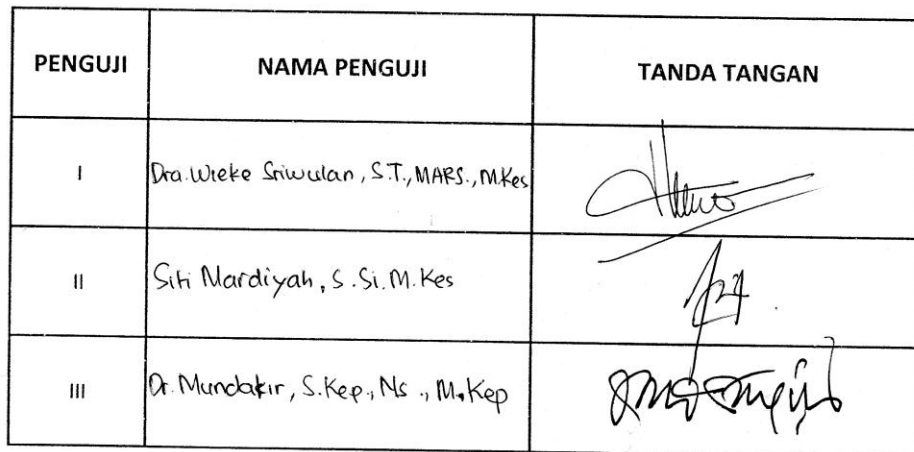 PENGUJI NAMA PENGUJI TANDA TANGAN
I Dra. Wieke Sriwulan, S.T., MARS., M.Kes
II Siti Mardiyah, S.Si. M.Kes
III Dr. Mundakir, S.Kep., Ns ., M.Kep